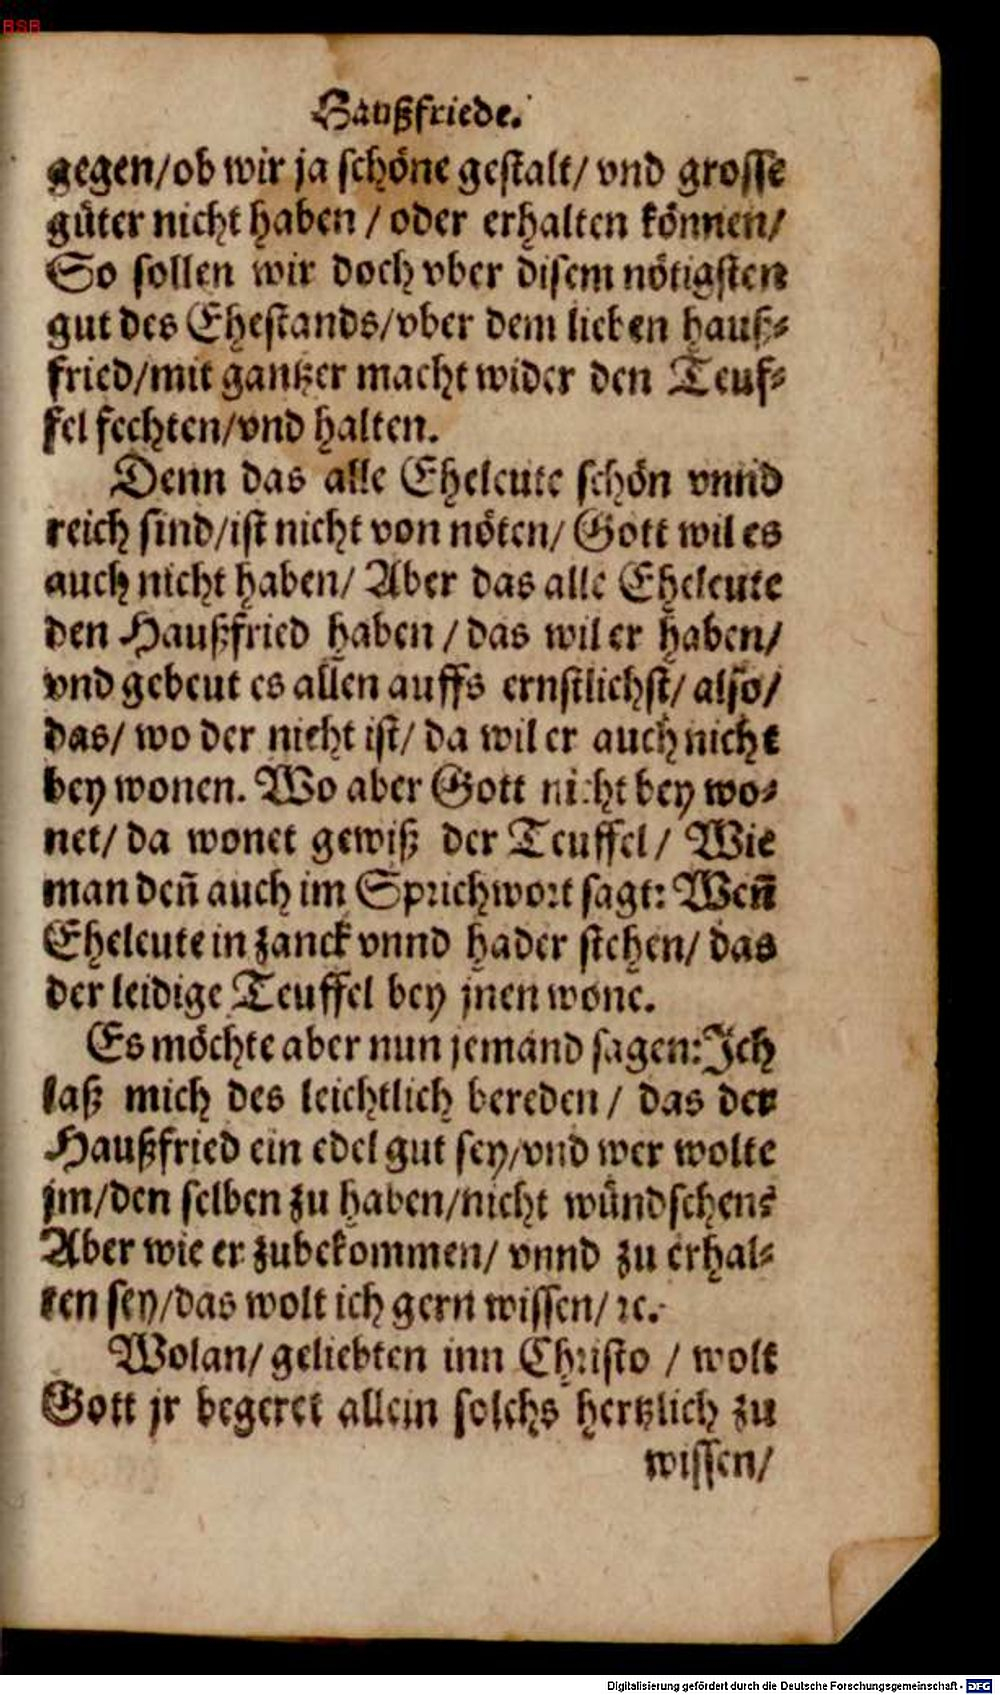 BSB
Haußfriede.
gegen/ob wir ja schöne gestalt/ vnd grosse
güter nicht haben / oder erhalten können/
So sollen wir doch vber disem nötigsten
gut des Ehestands/vber dem lieben hauß⸗
fried/mit gantzer macht wider den Teuf⸗
fel fechten/vnd halten.
Denn das alle Eheleute schön vnnd
reich sind/ist nicht von nöten/ Gott wil es
auch nicht haben/ Aber das alle Eheleute
den Haußfried haben / das wil er haben/
vnd gebeut es allen auffs ernstlichst/ also/
das/ wo der nicht ist/ da wil er auch nicht
bey wonen. Wo aber Gott nicht bey wo⸗
net/ da wonet gewiß der Teuffel/ Wie
man deñ auch im Sprichwort sagt: Weñ
Eheleute in zanck vnnd hader stehen/ das
der leidige Teuffel bey jnen wone.
Es möchte aber nun jemand sagen: Ich
laß mich des leichtlich bereden / das der
Haußfried ein edel gut sey/vnd wer wolte
jm/den selben zu haben/nicht wündschen?
Aber wie er zubekommen/ vnnd zu erhal⸗
ten sey/das wolt ich gern wissen/ ꝛc.
Wolan/ geliebten inn Christo / wolt
Gott jr begeret allein solchs hertzlich zu
wissen/
Digitalisierung gefördert durch die Deutsche Forschungsgemeinschaft - DFG